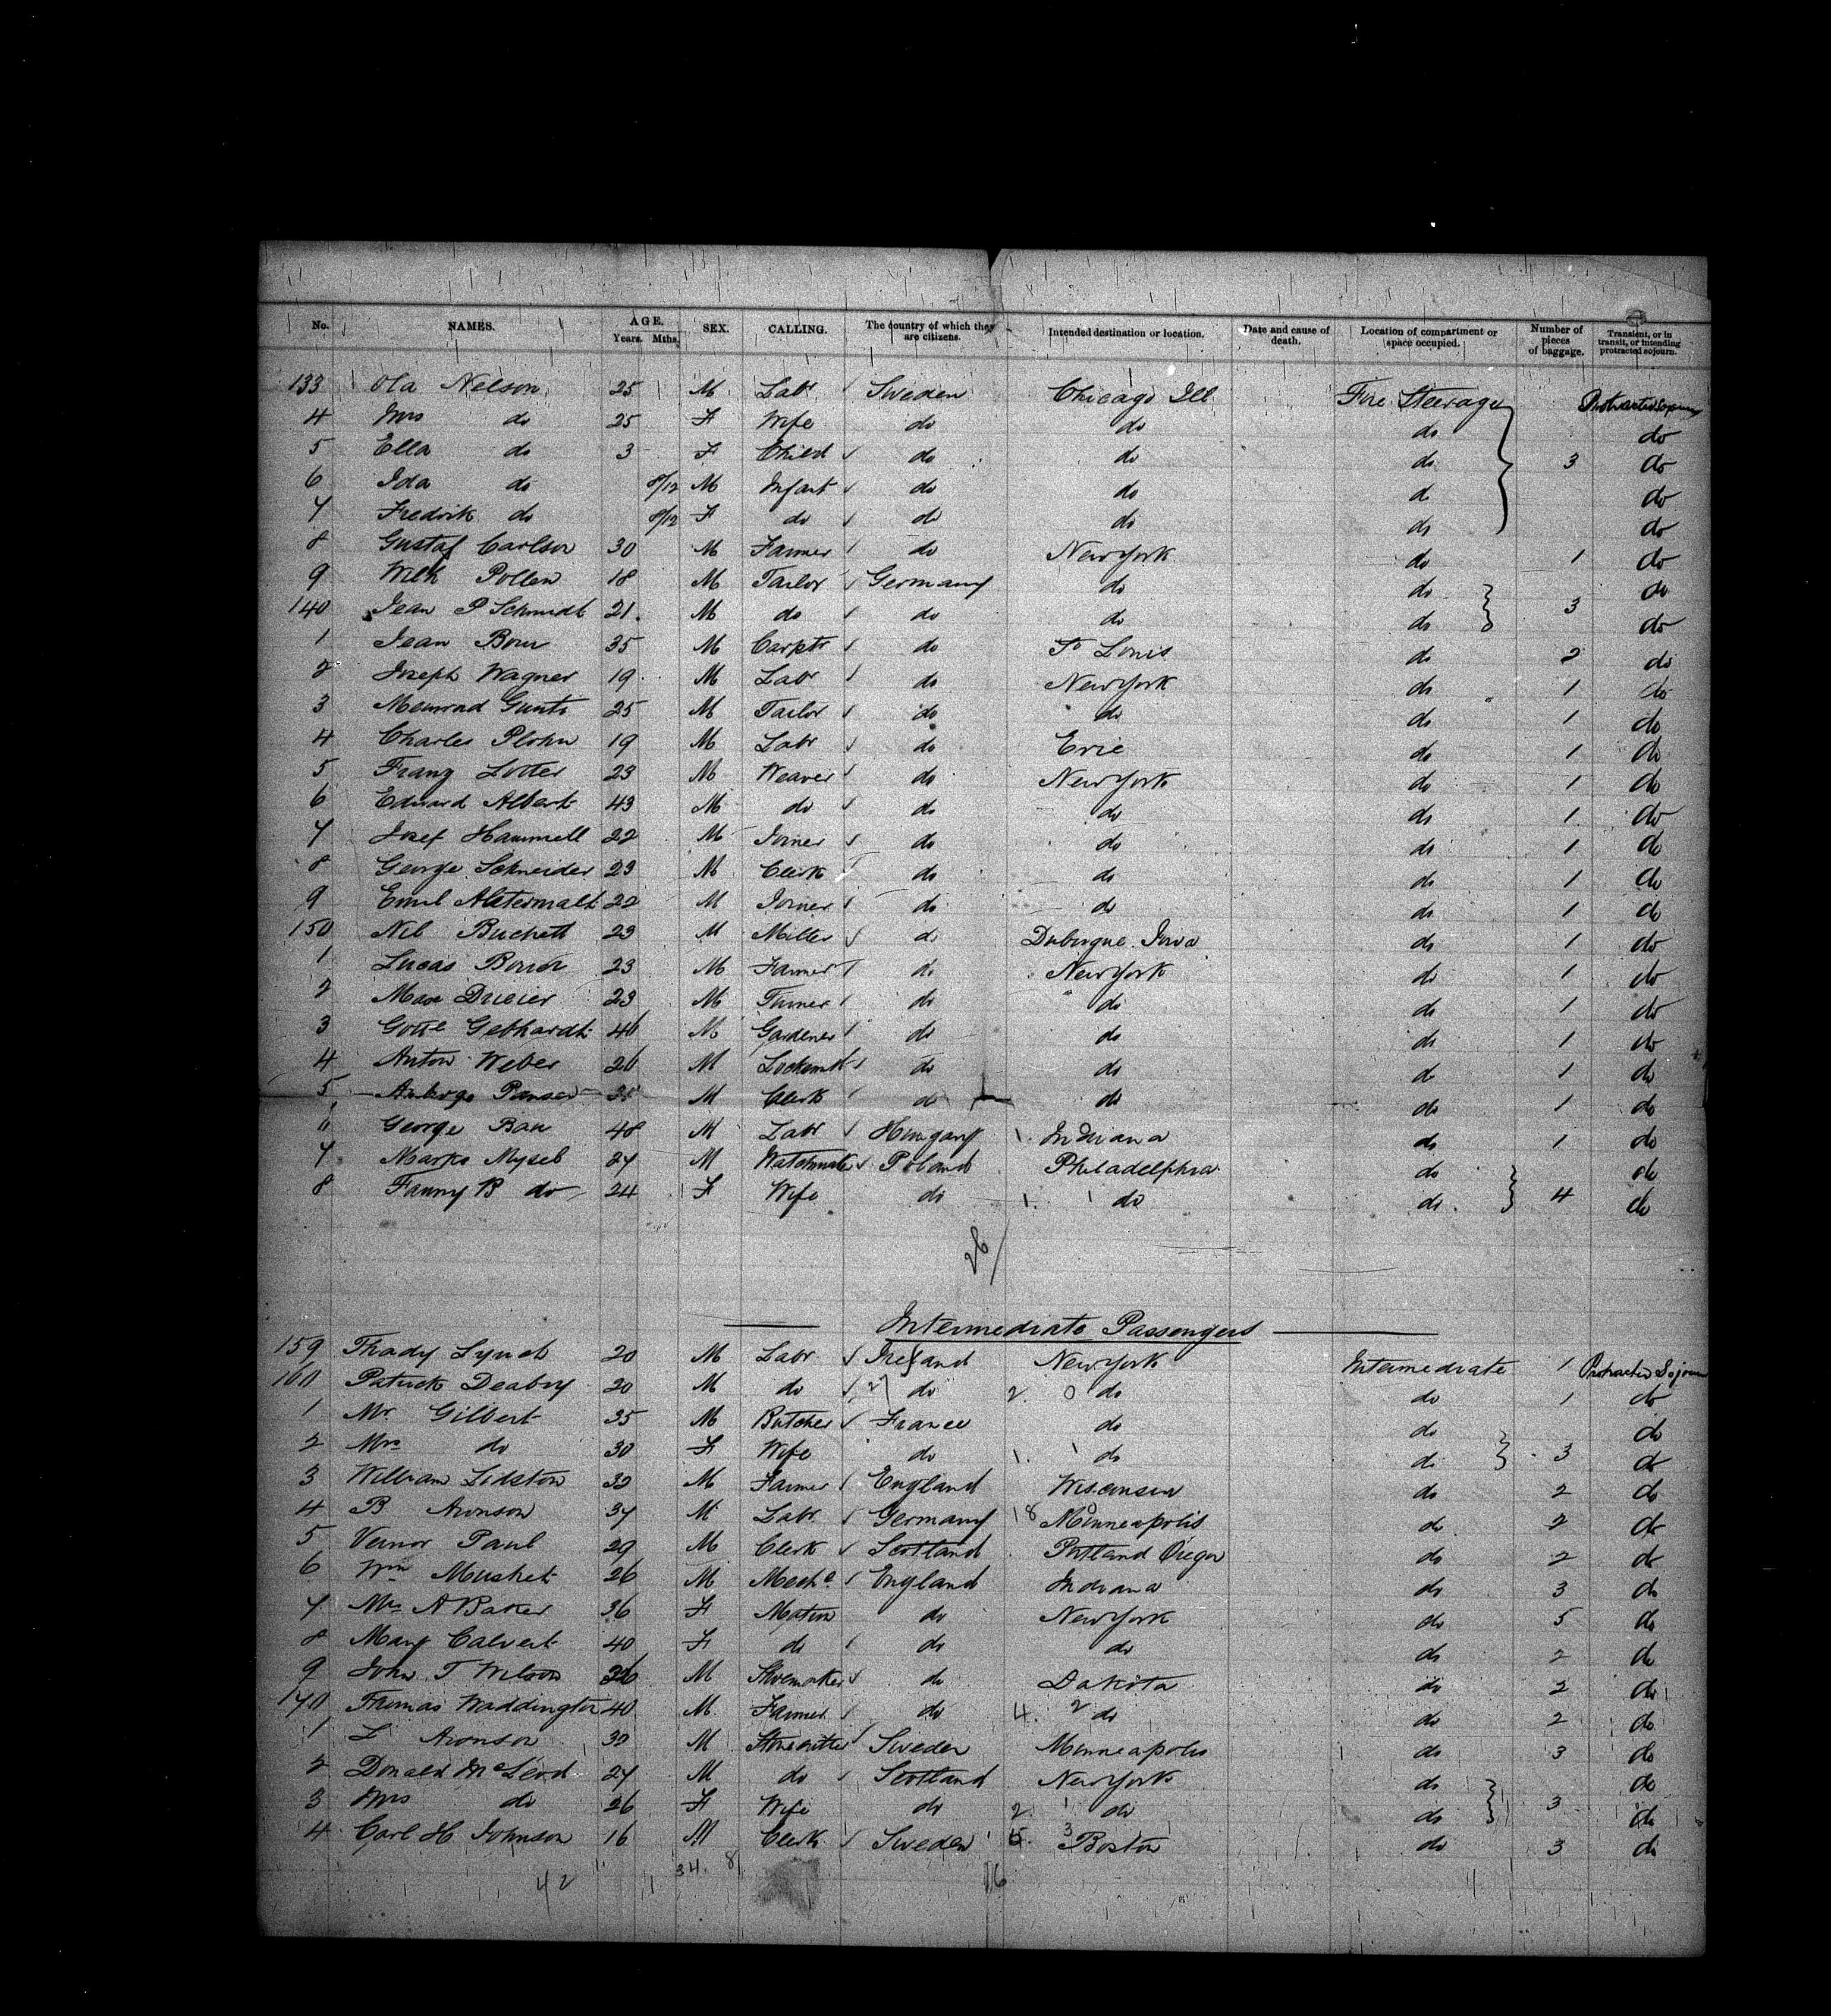 No. NAMES. AGE. Years. Mths. SEX. CALLING. The country of which they are citizens. Intended destination or location. Date and cause of death. Location of compartment or space occupied. Number of pieces of baggage. Transient, or in transit, or intending protracted sojourn.
133 Ola Nelson 25 M Labr Sweden Chicago Ill Fore Steerage Protracted Sojourn
4 Mrs do 25 F Wife do do do do
5 Ella do 3 F Child do do do 3 do
6 Ida do 8/12 M Infant do do d do
7 Fredrik do 8/12 F do do do do do
8 Gustaf Carlson 30 M Farmer do New York do 1 do
9 Wilh Pollen 18 M Tailor Germany do do do
140 Jean P Schmidt 21 M do do do do 3 do
1 Jean Bour 35 M Carptr do St Louis do 2 do
2 Joseph Wagner 19 M Labr do New York do 1 do
3 Meinrad Gunti 25 M Tailor do do do 1 do
4 Charles Plohn 19 M Labr do Erie do 1 do
5 Franz Lotter 23 M Weaver do New York do 1 do
6 Edward Albert 43 M do do do do 1 do
7 Josef Hammell 22 M Joiner do do do 1 do
8 George Schneider 23 M Clerk do do do 1 do
9 Emil 22 M Joiner do do do 1 do
150 Nil Buchett 23 M Miller do Dubuque Iowa do 1 do
1 Lucas 23 M Farmer do New York do 1 do
2 Max 23 M Turner do do do 1 do
3 Gottl Gebhardt 46 M Gardener do do do 1 do
4 Anton Weber 26 M Locksmth do do do 1 do
5 35 M Clerk do do do 1 do
6 George Bau 48 M Labr Hungary 1. Indiana do 1 do
7 Marks Myseb 27 M Watchmake Poland Philadelphia do do
8 Fanny B do 24 F Wife do 1. 1 do do 4 do
26
Intermediate Passengers
159 Thady Lynch 20 M Labr Ireland New York Intermediate 1 Protracted Sojourn
160 Patrick Deabry 20 M do 27 do 2 0 do do 1 do
1 Mr Gilbert 35 M Butcher France do do do
2 Mrs do 30 F Wife do 1. 1 do do 3 do
3 William Lidston 32 M Farmer England Wisconsin do 2 do
4 B Aronson 37 M Labr Germany 18 0 Minneapolis do 2 do
5 Vernor Paul 29 M Clerk Scotland Portland Oregon do 2 do
6 Wm Mushet 26 M Mechc England Indiana do 3 do
7 Mrs A Baker 36 F Matron do New York do 5 do
8 Mary Calvert 40 F do do do do 2 do
9 John T Wilson 36 M Shoemaker do Dakota do 2 do
170 Thomas Waddington 40 M Farmer do 4. 2 do do 2 do
1 L Aronson 32 M Stonecutter Sweden Minneapolis do 3 do
2 Donald McLeod 27 M do Scotland New York do do
3 Mrs do 26 F Wife do 2 1 do do 3 do
4 Carl H Johnson 16 M Clerk Sweden 5. 3 Boston do 3 do
42 34. 8 16